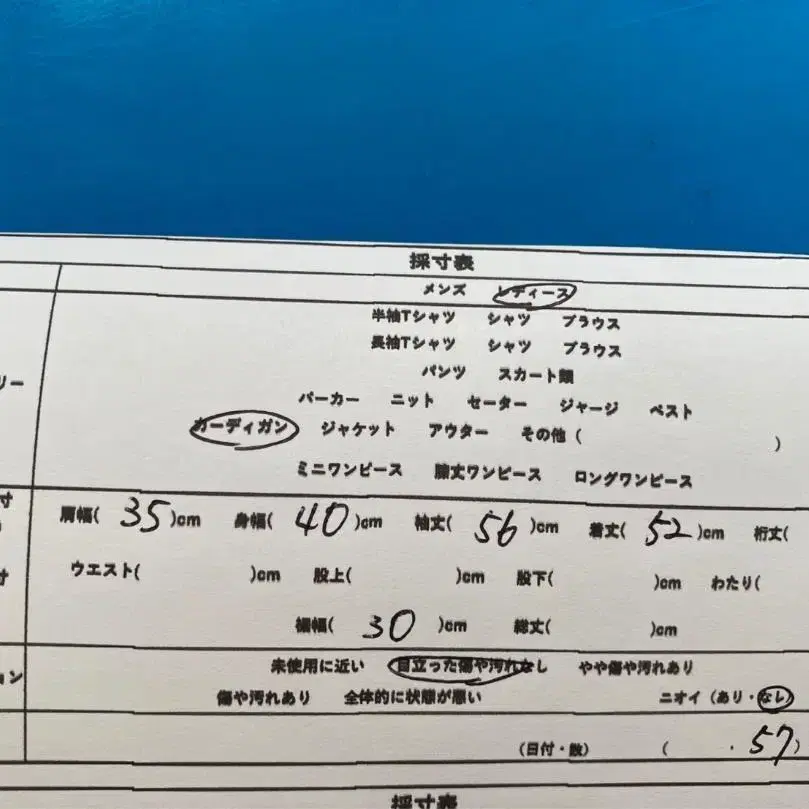 採寸表
メンズ レディース
半袖Tシャツ シャツ ブラウス
長袖Tシャツ シャツ ブラウス
リー
パンツ スカート類
パーカー ニット セーター ジャージ ベスト
カーディガン ジャケット アウター その他( )
ミニワンピース 膝丈ワンピース ロングワンピース
寸
肩幅( 35 )cm 身幅( 40 )cm 袖丈( 56 )cm 着丈( 52 )cm 裄丈(
寸
ウエスト( )cm 股上( )cm 股下( )cm わたり(
裾幅( 30 )cm 総丈( )cm
ョン
未使用に近い 目立った傷や汚れなし やや傷や汚れあり
傷や汚れあり 全体的に状態が悪い ニオイ(あり・なし)
(日付・数) ( ・ 57)
採寸表